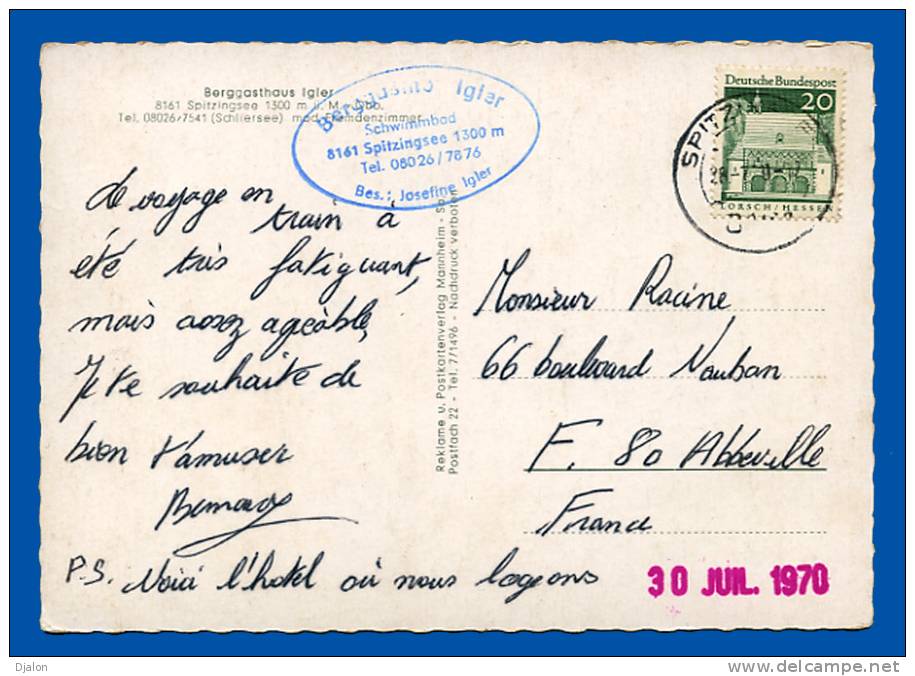 Berggasthaus Igler
8161 Spitzingsee 1300 m ü. M. Obb.
Tel. 08026/7541 (Schliersee) mod. Fremdenzimmer
Igler
Schwimmbad
8161 Spitzingsee 1300 m
Tel. 08026/7876
Bes.: Josefine Igler
Deutsche Bundespost
20
LORSCH/HESSEN
SPITZI
Le voyage en
train à
été très fatiguant,
mais assez agéable,
Je te souhaite de
bien t'amuser
P.S. Voici l'hotel où nous logeons
Reklame u. Postkartenverlag Mannheim - 
Postfach 22 - Tel. 7/1496 - Nachdruck verboten
Monsieur Racine
66 boulevard Vauban
F. 80 Abbeville
France
30 JUIL. 1970
Djalon
www.delcampe.net